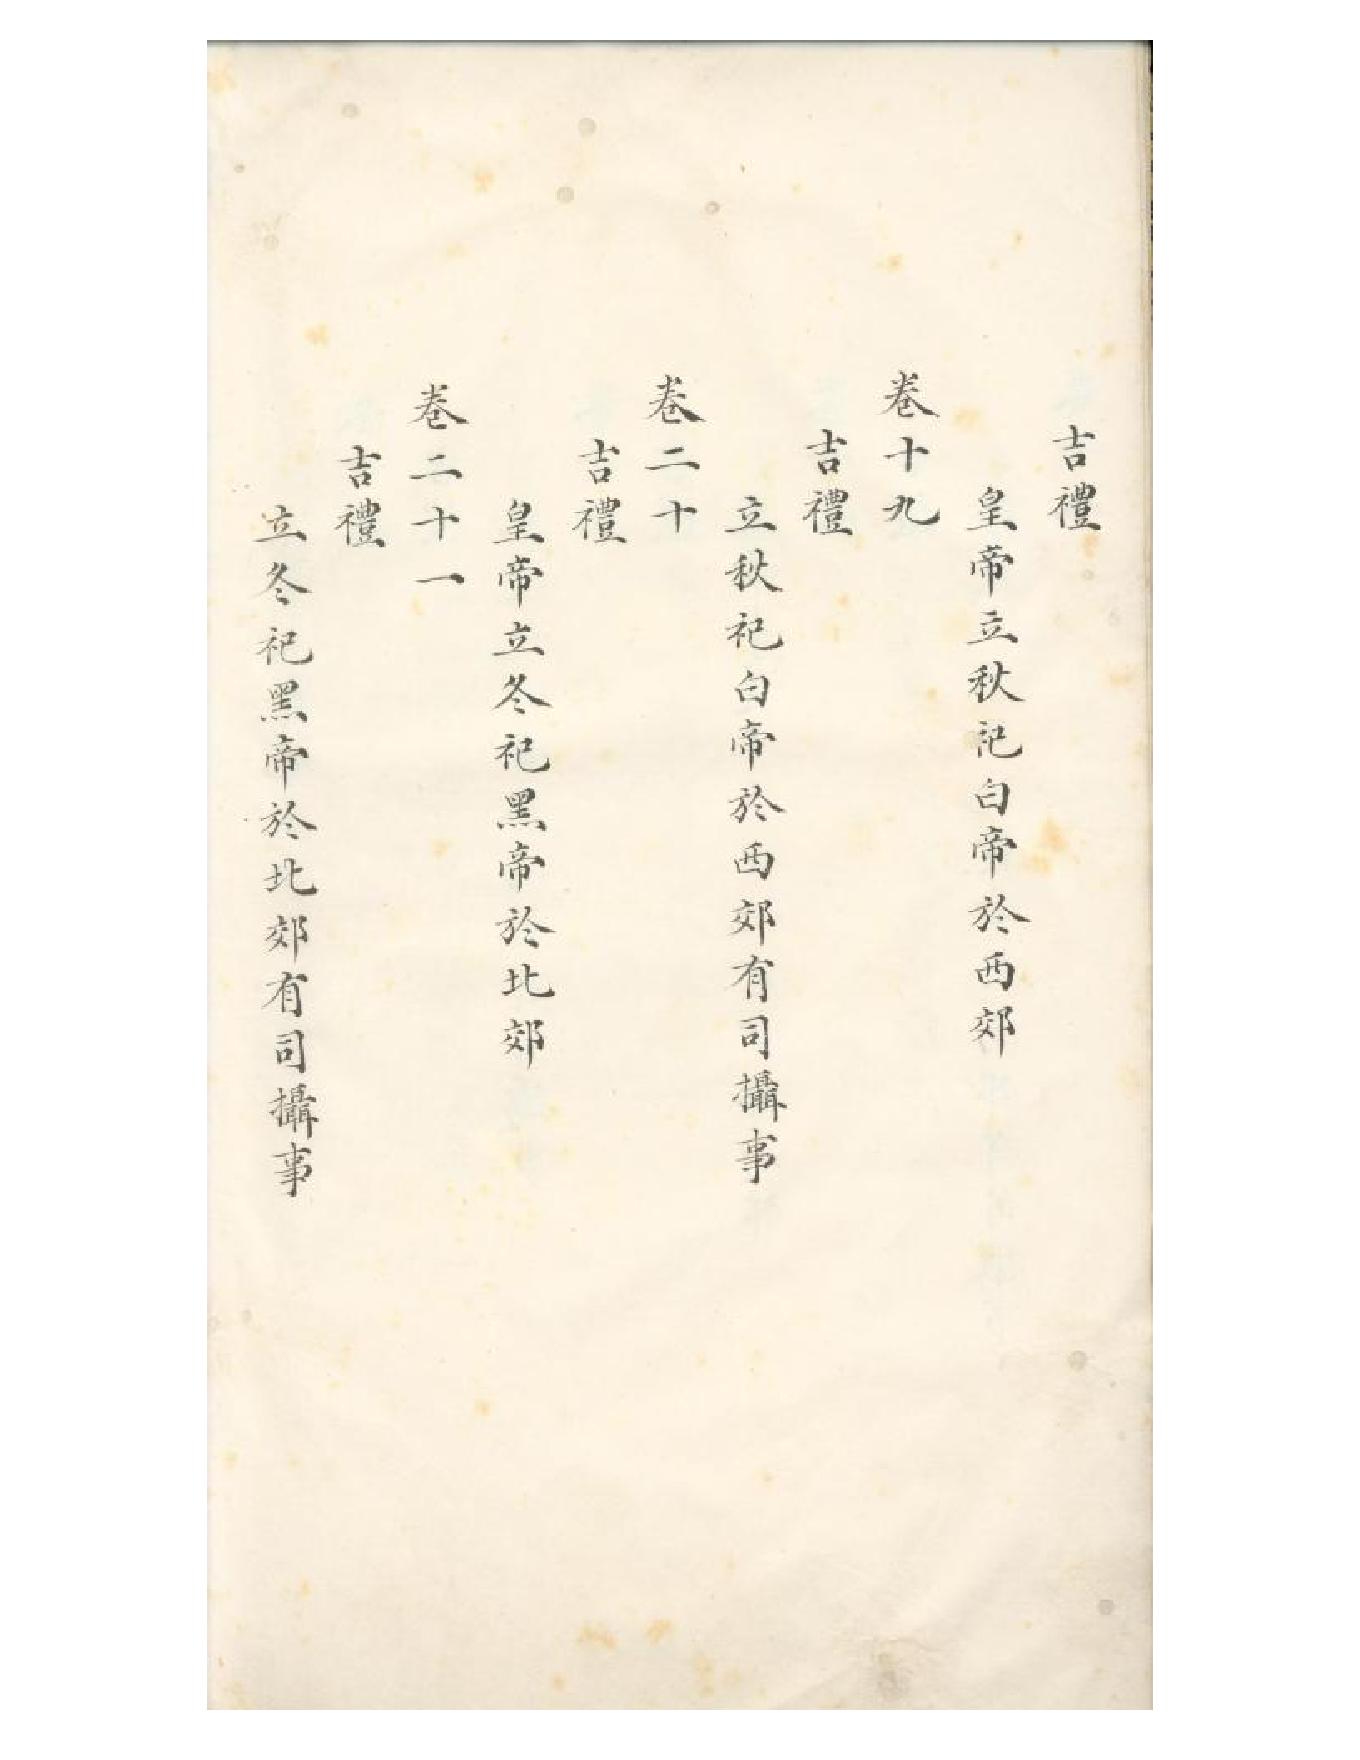 吉禮
皇帝立秋祀白帝於西郊
卷十九
吉禮
立秋祀白帝於西郊有司攝事
卷二十
吉禮
皇帝立冬祀黑帝於北郊
卷二十一
吉禮
立冬祀黑帝於北郊有司攝事